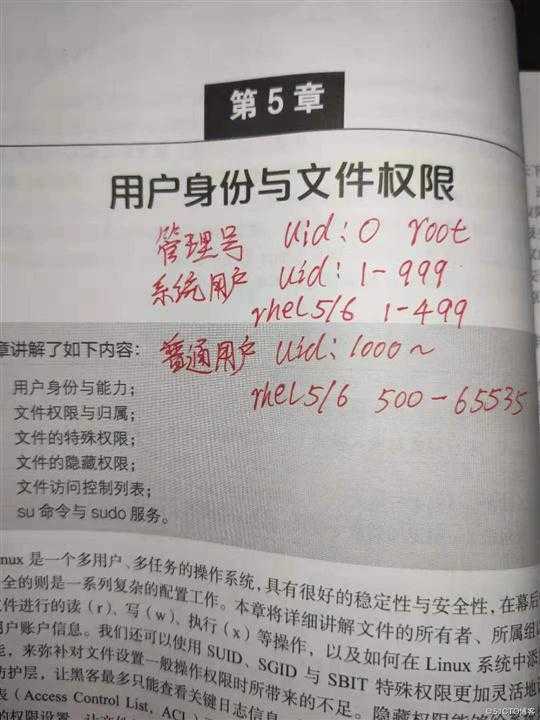 第5章
用户身份与文件权限
管理号 Uid:0 root
系统用户 Uid:1-999
rhel5/6 1-499
章讲解了如下内容:
普通用户 Uid:1000~
用户身份与能力;
rhel5/6 500-65535
文件权限与归属;
文件的特殊权限;
文件的隐藏权限;
文件访问控制列表;
su 命令与 sudo 服务。
inux 是一个多用户、多任务的操作系统,具有很好的稳定性与安全性,在幕后
全的则是一系列复杂的配置工作。本章将详细讲解文件的所有者、所属组以
件进行的读(r)、写(w)、执行(x)等操作,以及如何在 Linux 系统中添
用户账户信息。我们还可以使用 SUID、SGID 与 SBIT 特殊权限更加灵活地
能,来弥补对文件设置一般操作权限时所带来的不足。隐藏权限
防护层,让黑客最多只能查看关键日志信息
表(Access Control List, ACL)
@51CTO博客